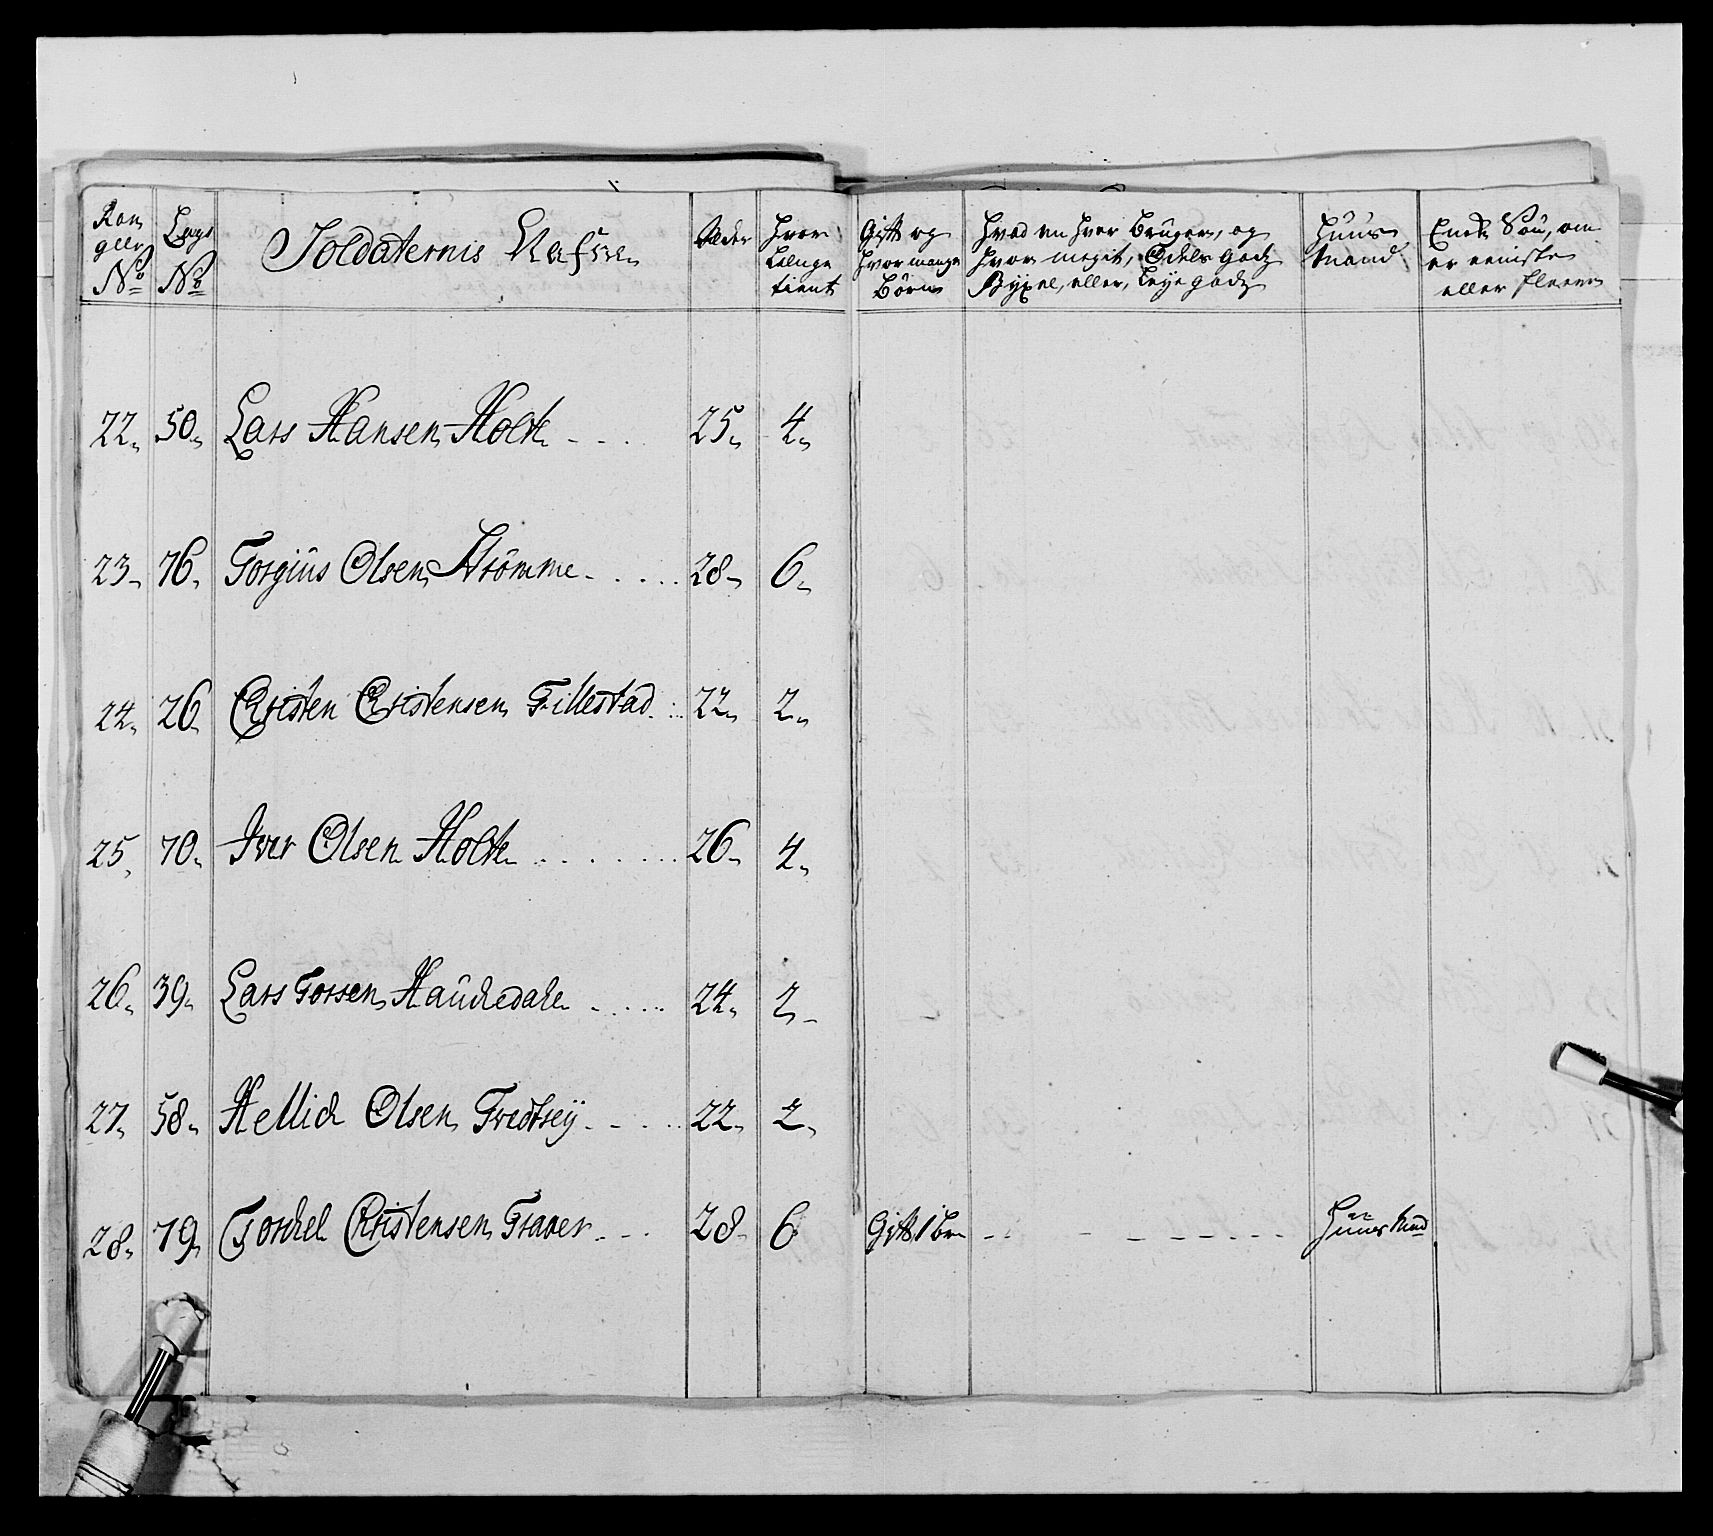 Ran geer No
Legs No
Soldaternis Nafne
Alder
Hvor Lenge tient
Gift og hvor mange Børn
Hvad en hver Bruger, og hvor megit, Odels godz Byxel, eller, Leye godz
Huus Mand
Eneste Søn, om er eeniste eller fleere
22, 50, Lars Hansen Holte 25, 4,
23, 76, Torgius Olsen Strømme 28, 6,
24, 26 Cristen Cristensen Tillestad 22, 2,
25, 70, Iver Olsen Holte 26, 4,
26, 39, Lars Torsen Haukedale 24, 2,
27, 58, Hellick Olsen Tvedtsey 22, 2,
28, 79, Torkel Cristensen Traaer 28 6 Gift 1 br Huus Mand